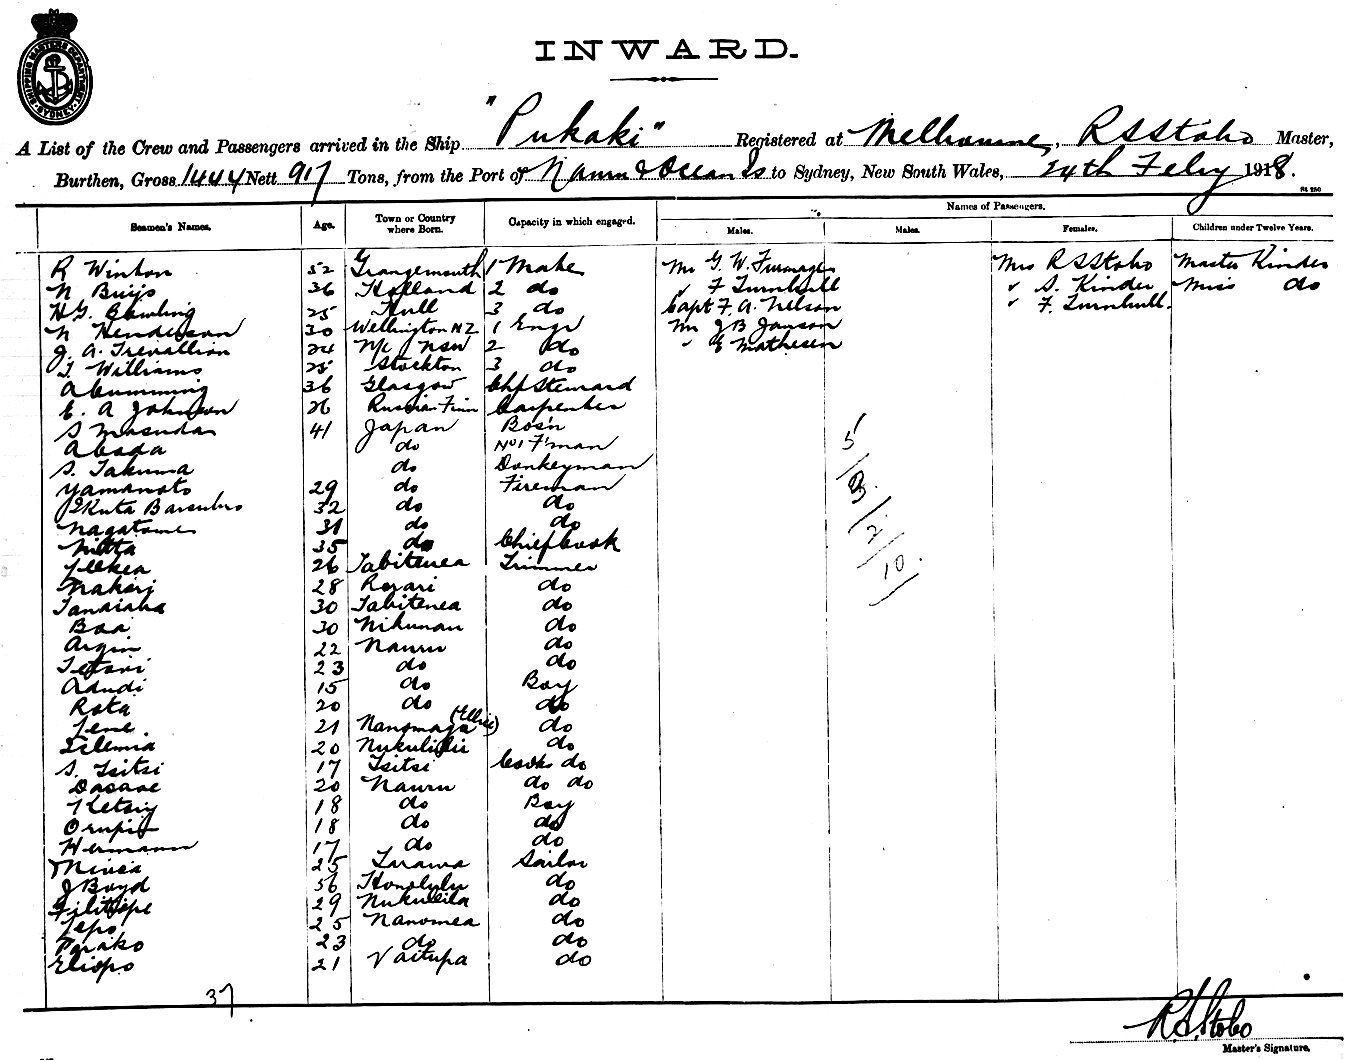 SHIPPING MASTERS DEPARTMENT SYDNEY
INWARD.
A List of the Crew and Passengers arrived in the Ship "Pukaki" Registered at Melbourne, R S Stobo Master,
Burthen, Gross 1444 Nett 917 Tons, from the Port of Nauru & Ocean Is to Sydney, New South Wales, 24th Feby 1918.
Seamen's Names. Age. Town or Country where Born. Capacity in which engaged. Names of Passengers.
Males. Males. Females. Children under Twelve Years.
R Winton 52 Grangemouth 1 Mate Mr G. W. Mrs R S Stobo Master Kinder
N Buijs 36 Holland 2 do " F Turnbull " S. Kinder Miss do
H G. 25 Hull 3 do Capt F. A. Nelson " F. Turnbull.
N Henderson 30 Wellington NZ 1 Engr Mr J B Janson
J. A. Trevallion 24 N/c NSW 2 do " E Mathesen
J. Williams 25 Stockton 3 do
A Cumming 36 Glasgow Chf Steward
E. A Johnson 26 Russian Finn Carpenter
S Masuda 41 Japan Bos'n
Abada do No 1 F'man
S. Takuma do Donkeyman
Yamamoto 29 do Fireman
32 do do
Nagatome 31 do do
Nitta 35 do Chief Cook
26 Tabitenea Trimmer
Nakarj 28 do
Tanaiaba 30 Tabitenea do
Baa 30 Nikunau do
22 Nauru do
23 do do
Adudi 15 do Boy
Rota 20 do do
21 Nanomaga (Ellice) do
20 do
S. Tsitsi 17 Tsitsi Cooks do
Dasaae 20 Nauru do do
18 do Boy
18 do do
Hermann 17 do do
25 Tarawa Sailor
J Boyd 56 Honolulu do
29 do
Tepo 25 Nanomea do
23 do do
Eliopo 21 Vaitupa do
37
5/3/2/10/
R S Stobo
Master's Signature.